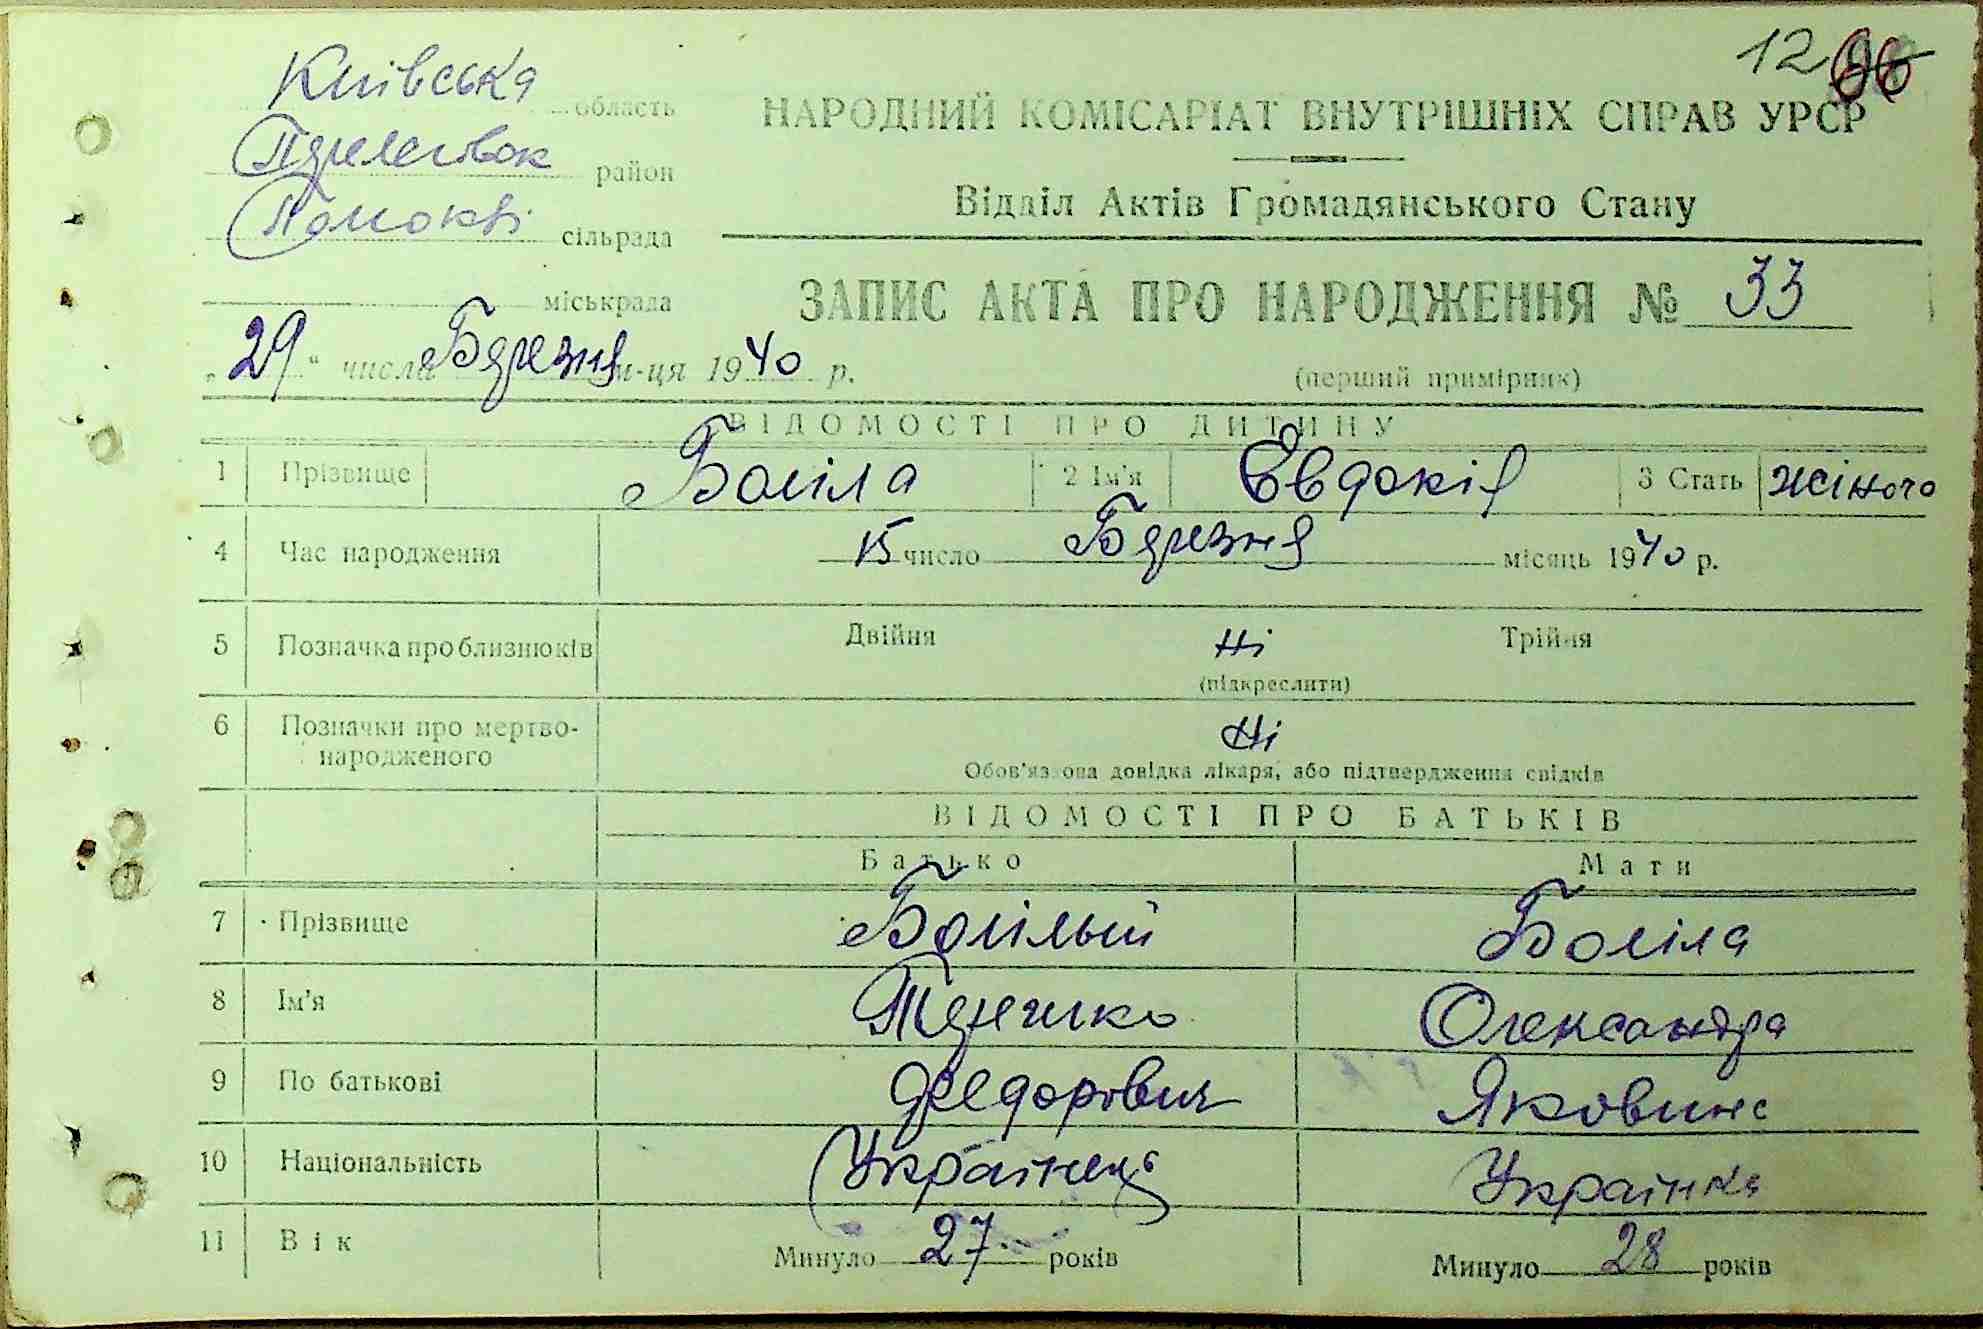 12 66
Київська область
район
сільрада
міськрада
НАРОДНИЙ КОМІСАРІАТ ВНУТРІШНІХ СПРАВ УРСР
Відділ Актів Громадянського Стану
ЗАПИС АКТА ПРО НАРОДЖЕННЯ № 33
„29“ числа Березня м-ця 1940 р.
(перший примірник)
ВІДОМОСТІ ПРО ДИТИНУ
1 Прізвище Боліла 2 Ім'я Евдокія 3 Стать жіночо
4 Час народження 15 число Березня місяць 1940 р.
5 Позначка про близнюків Двійня Ні Трійня
(підкреслити)
6 Позначки про мертво-
народженого Ні
Обов'язкова довідка лікаря, або підтвердження свідків
ВІДОМОСТІ ПРО БАТЬКІВ
Батько Мати
7 Прізвище Болілый Боліла
8 Ім'я Олександра
9 По батькові Федорович Яковина
10 Національність Українець Українка
11 Вік Минуло 27 років Минуло 28 років